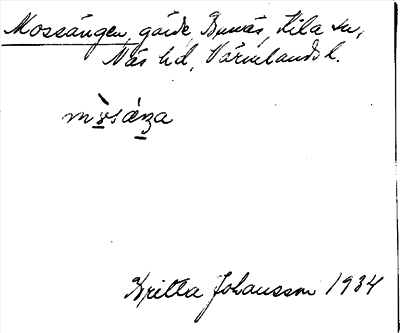 Mossängen, gärde, Bunäs, Kila sn,
Näs hd, Värmlands l.
Britta Johansson 1934